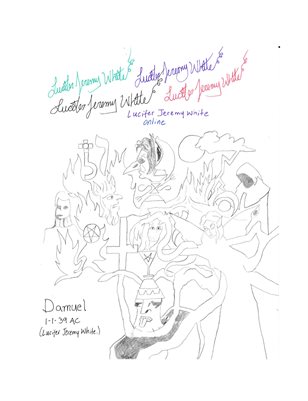 Lucifer Jeremy White
Lucifer Jeremy White
Lucifer Jeremy White
Lucifer Jeremy White
Lucifer Jeremy White
online
Damuel
1-1-39 AC
(Lucifer Jeremy White.)